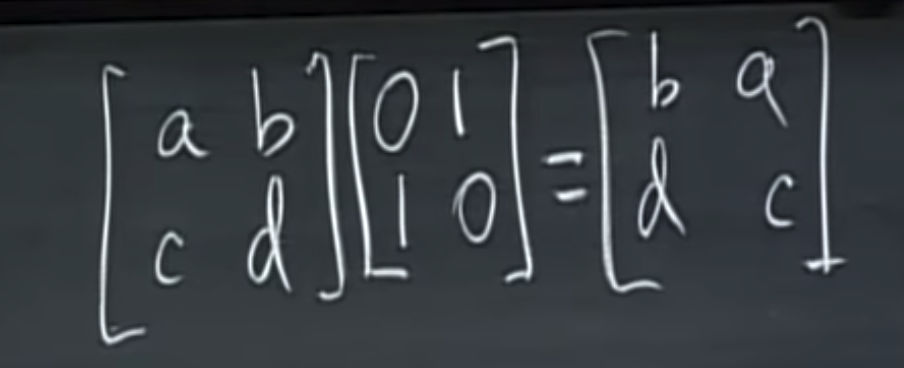 [a b; c d] [0 1; 1 0] = [b a; d c]